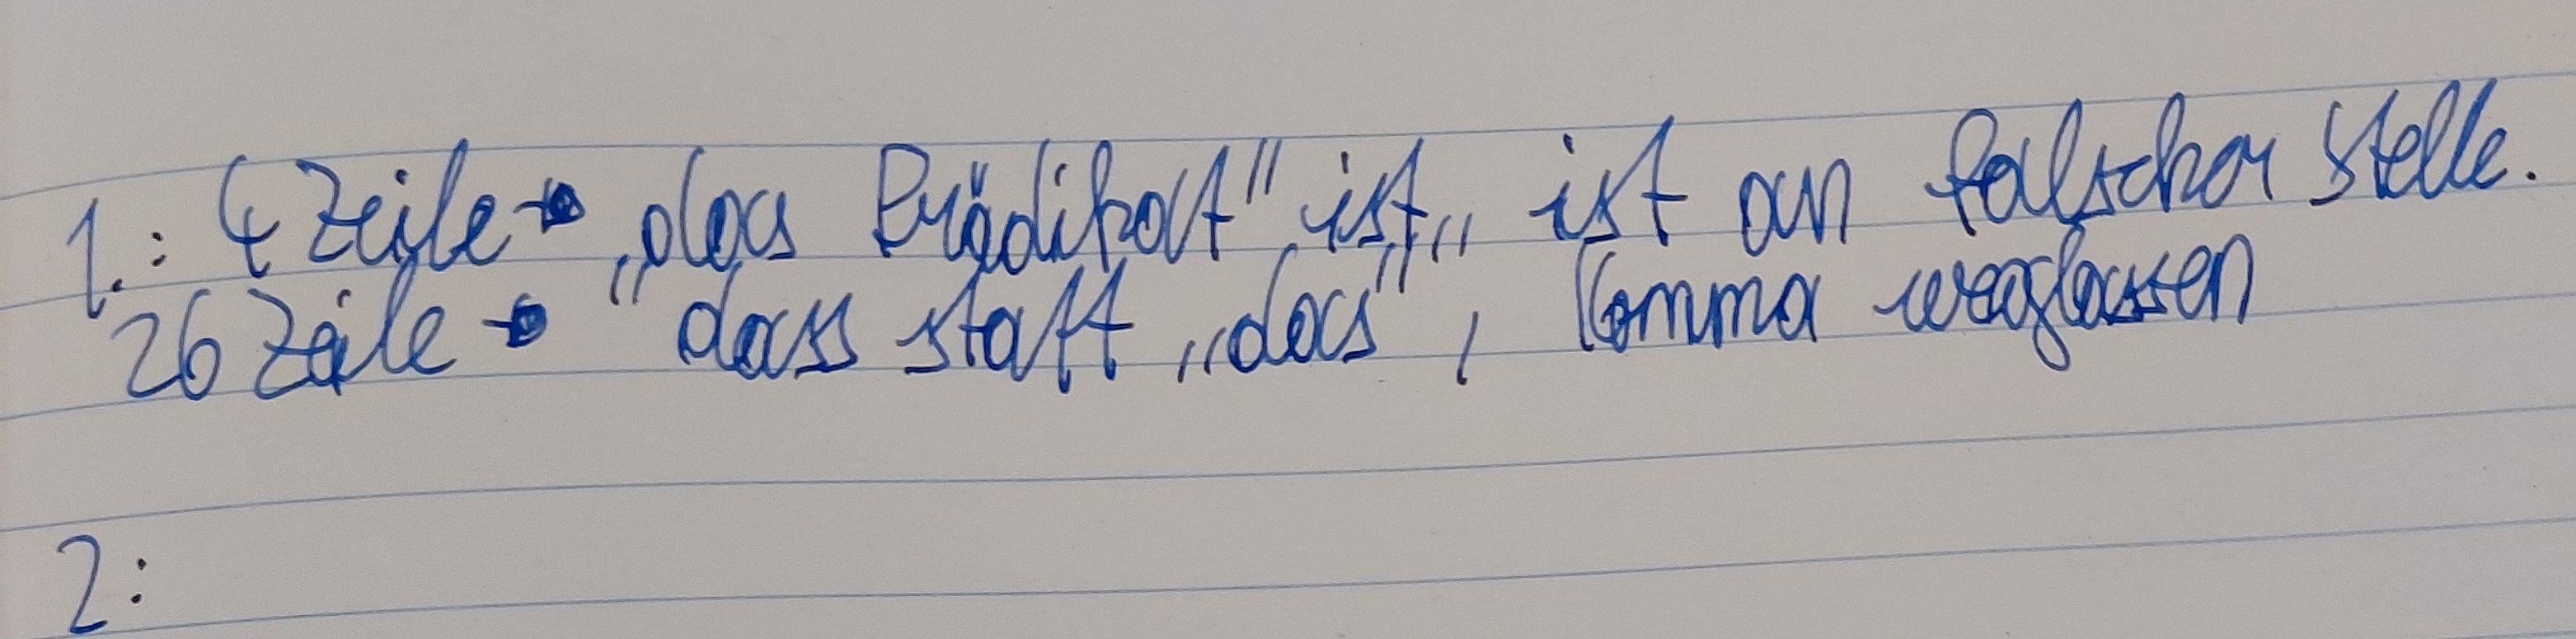 1.: 4 Zeile → „das Prädikat" ist„ ist an falscher Stelle.
26 Zeile → "dass statt „das", Komma weglassen
2: